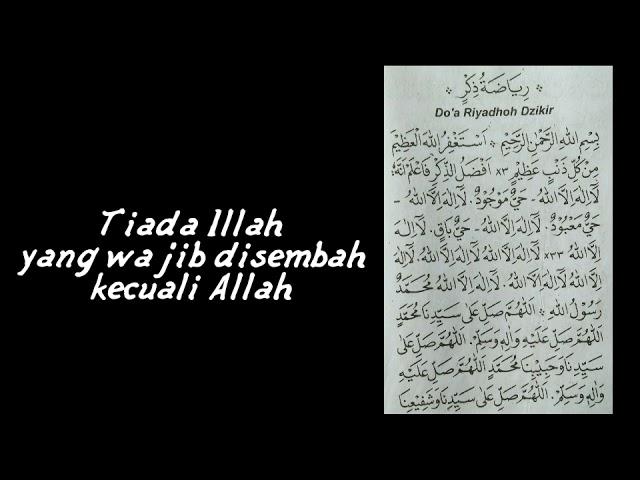 Tiada Illah
yang wajib disembah
kecuali Allah
* رِيَاضَةُ ذِكْرٍ *
Do'a Riyadhoh Dzikir
بِسْمِ اللهِ الرَّحْمٰنِ الرَّحِيْمِ * اَسْتَغْفِرُ اللهَ الْعَظِيْمَ
مِنْ كُلِّ ذَنْبٍ عَظِيْمٍ ×٣ اَفْضَلُ الذِّكْرِ فَاعْلَمْ اَنَّهُ:
لَا اِلٰهَ اِلَّا اللهُ - حَيٌّ مَوْجُوْدٌ. لَا اِلٰهَ اِلَّا اللهُ -
حَيٌّ مَعْبُوْدٌ. لَا اِلٰهَ اِلَّا اللهُ - حَيٌّ بَاقٍ. لَا اِلٰهَ
اِلَّا اللهُ ×٣٣ لَا اِلٰهَ اِلَّا اللهُ. لَا اِلٰهَ
اِلَّا اللهُ لَا اِلٰهَ اِلَّا اللهُ. لَا اِلٰهَ اِلَّا اللهُ مُحَمَّدٌ
رَسُوْلُ اللهِ * اَللّٰهُمَّ صَلِّ عَلٰى سَيِّدِنَا مُحَمَّدٍ
اَللّٰهُمَّ صَلِّ عَلَيْهِ وَاٰلِهِ وَسَلِّمْ. اَللّٰهُمَّ صَلِّ عَلٰى
سَيِّدِنَا وَحَبِيْبِنَا مُحَمَّدٍ اَللّٰهُمَّ صَلِّ عَلَيْهِ
وَاٰلِهِ وَسَلِّمْ. اَللّٰهُمَّ صَلِّ عَلٰى سَيِّدِنَا وَشَفِيْعِنَا